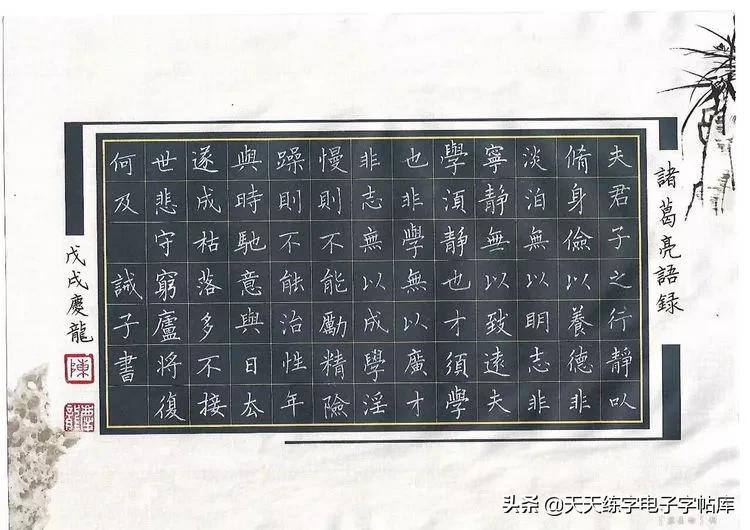 諸葛亮語錄
夫君子之行靜以
脩身儉以養德非
淡泊無以明志非
寧靜無以致遠夫
學須靜也才須學
也非學無以廣才
非志無以成學淫
慢則不能勵精險
躁則不能治性年
與時馳意與日去
遂成枯落多不接
世悲守窮廬將復
何及 誡子書
戊戌慶龍
陳
头条 @天天练字电子字帖库